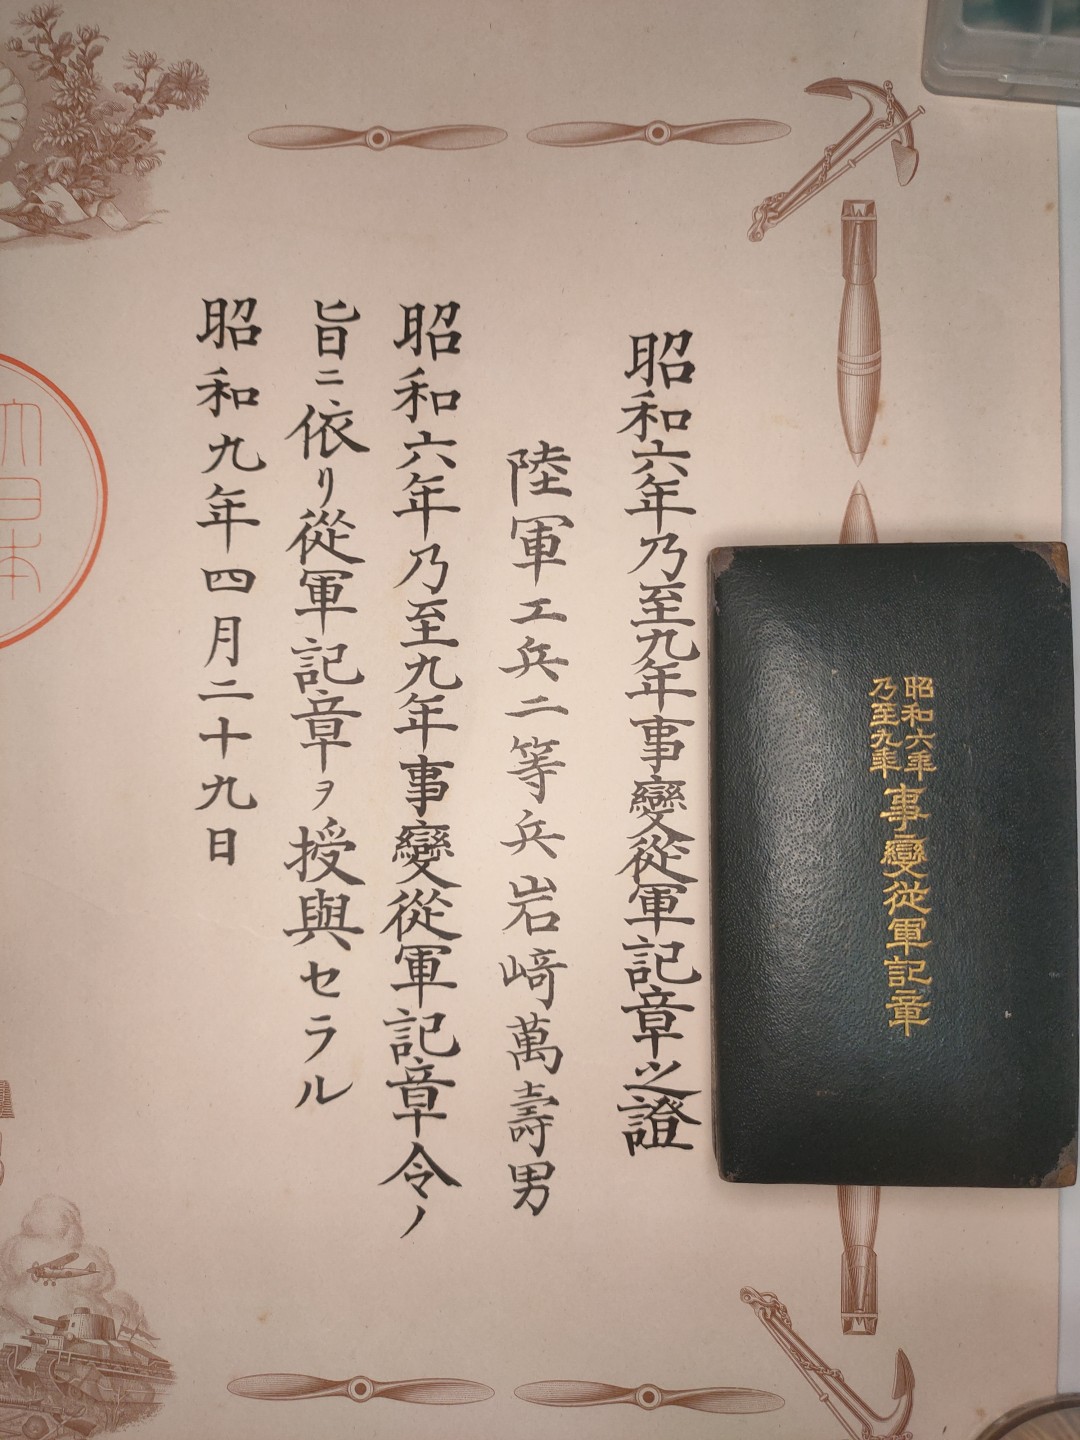 昭和六年乃至九年事變從軍記章之證
陸軍工兵二等兵岩﨑萬壽男
昭和六年乃至九年事變從軍記章令ノ
旨ニ依リ從軍記章ヲ授與セラル
昭和九年四月二十九日
大日本
昭和六年
乃至九年
事變從軍記章